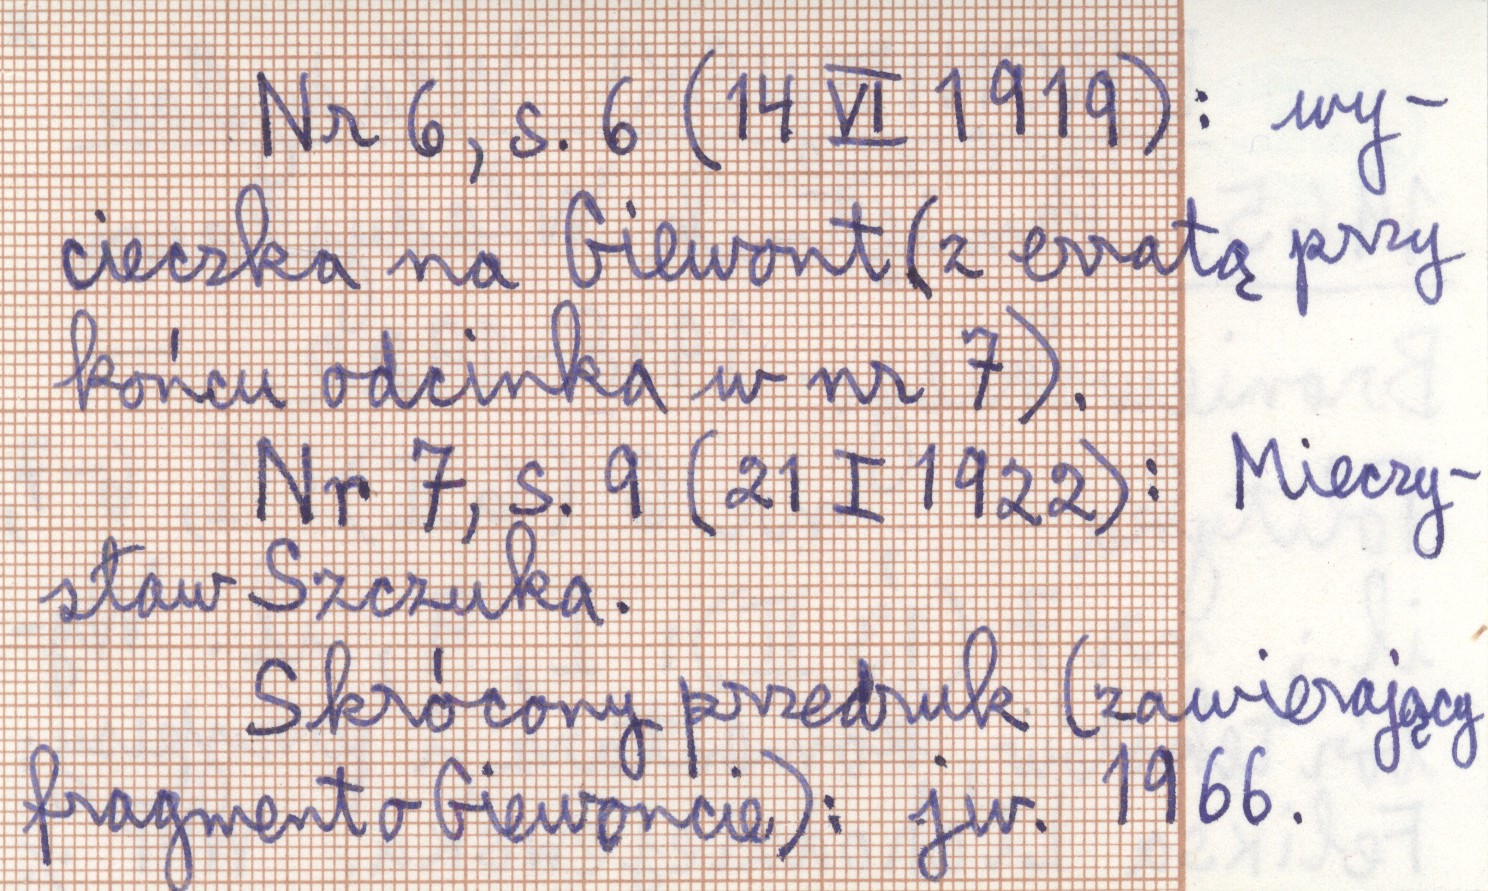 Nr 6, s. 6 (14 VI 1919): wy-
cieczka na Giewont (z erratą przy
końcu odcinka w nr 7).
Nr 7, s. 9 (21 I 1922): Mieczy-
sław Szczuka.
Skrócony przedruk (zawierający
fragment o Giewoncie): jw. 1966.